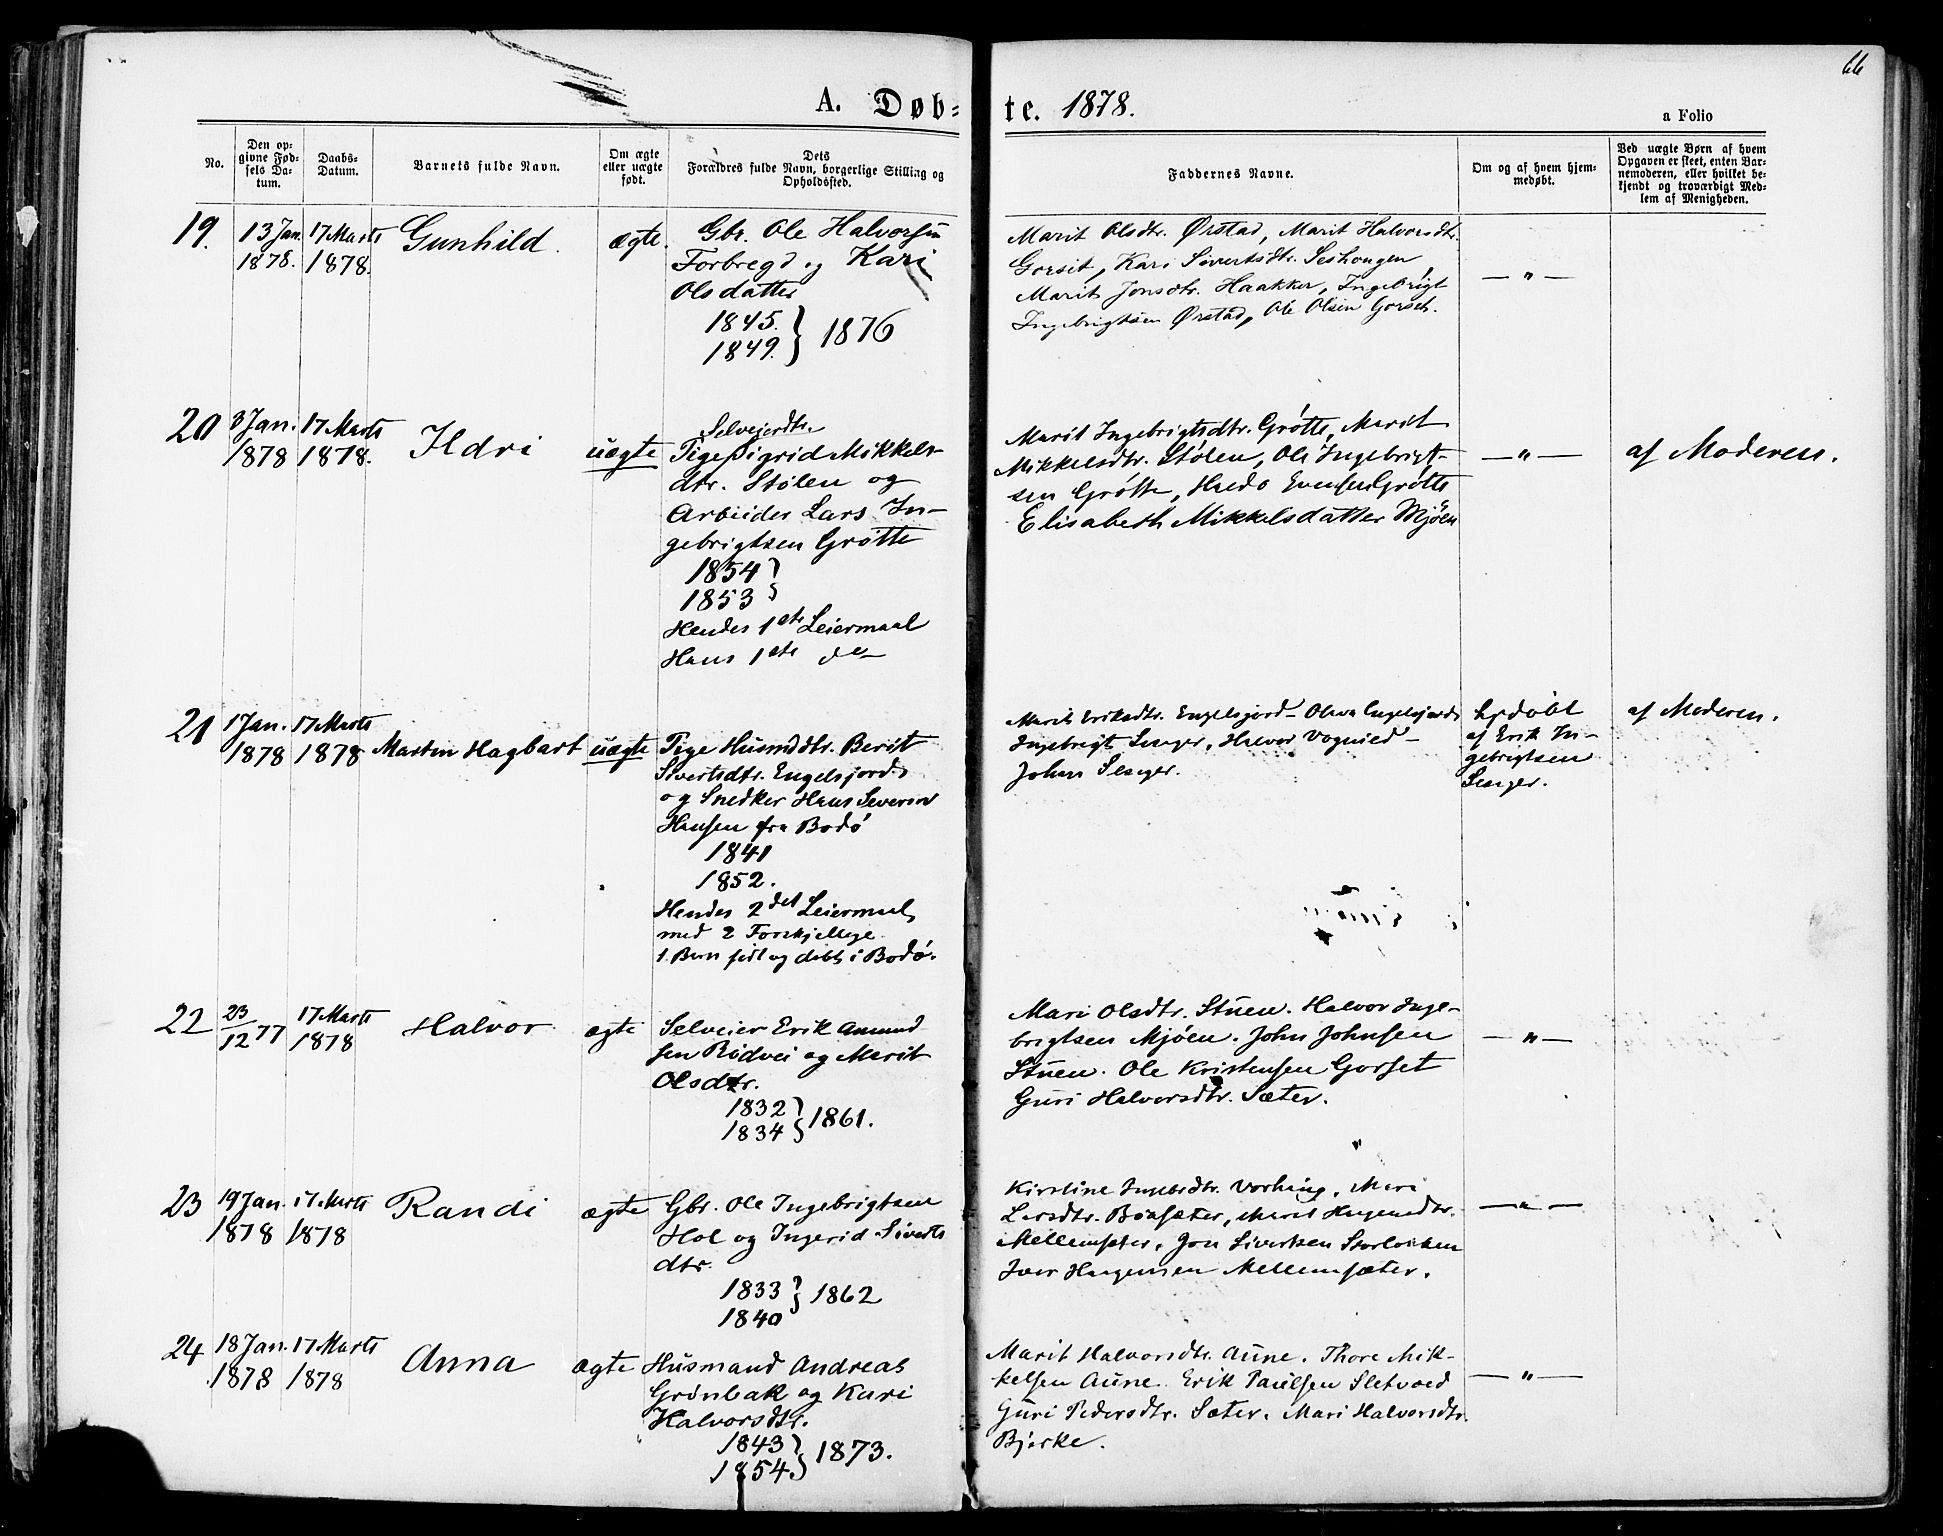 66
A. Døb=te. 1878.
a Folio
No.
Den op=
givne Fød=
sels Da=
tum.
Daabs=
Datum.
Barnets fulde Navn.
Om ægte
eller uægte
født.
Dets
Forældres fulde Navn, borgerlige Stilling og
Opholdssted.
Faddernes Navne.
Om og af hvem hjem=
medøbt.
Ved uægte Børn af hvem
Opgaven er skeet, enten Bar=
nemoderen, eller hvilket be=
kjendt og troværdigt Med=
lem af Menigheden.
19.
13 Jan.
1878.
17 Marts
1878.
Gunhild.
ægte.
Gbr. Ole Halvorsen
Forbregd og Kari
Olsdatter
1845. } 1876
1849.
Marit Olsdtr. Ørstad, Marit Halvorsdtr.
Gorsit, Kari Sivertsdtr.
Marit Jonsdtr. Haakker, Ingebrigt
Ingebrigtsen Ørstad, Ole Olsen Gorset.
— " —
20
3 Jan.
1878
17 Marts
1878.
Ildri
uægte
Selveierdtr.
Pige Sigrid Mikkels-
dtr. Stølen og
Arbeider Lars In-
gebrigtsen Grøtte
1854 }
1853
Hendes 1ste Leiermaal
Hans 1ste do
Marit Ingebrigtsdtr. Grøtte, Marit
Mikkelsdtr. Stølen, Ole Ingebrigt-
sen Grøtte, Evensen Grøtte
Elisabeth Mikkelsdatter Mjøen
— " —
af Moderen.
21
1 Jan.
1878
17 Marts
1878
Martin Hagbart
uægte
Pige Husmdtr. Berit
Sivertsdtr. Engelsjord
og Snedker Hans Severin
Hansen fra Bodø
1841
1852.
Hendes 2det Leiermaal
med 2 Forskjellige
1. Barn født og døbt i Bodø.
Marit Eriksdtr. Engelsjord - Olava Engelsjord
Ingebrigt Seager, Halvor Vognild -
John Seager.
hjdøbt
af Erik In-
gebrigtsen
Seager.
af Moderen.
22
23
12 77
17 Marts
1878
Halvor
ægte
Selveier Erik Amund-
sen Rødvei og Marit
Olsdtr.
1832 } 1861.
1834
Mari Olsdtr. Stuen. Halvor Inge-
brigtsen Mjøen. John Johnsen
Stuen. Ole Kristensen Gorset
Guri Halvorsdtr. Sæter.
— " —
23
19 Jan.
1878
17 Marts
1878
Randi
ægte
Gbr. Ole Ingebrigtsen
Hol og Ingerid Siverts
dtr.
1833 } 1862
1840
Kirstine Ingebrdtr. Mari
Larsdtr. Marit Haagensdtr.
Mellemsæter. Jon Sivertsen
Iver Haagensen Mellemsæter.
— " —
24
18 Jan.
1878
17 Marts
1878
Anna
ægte
Husmand Andreas
Grønbak og Kari
Halvorsdtr.
1843 } 1873.
1854.
Marit Halvorsdtr. Aune. Thore Mik-
kelsen Aune. Erik Paulsen Sletvold
Guri Pedersdtr. Sæter. Mari Halvorsdtr.
Bjerke.
— " —